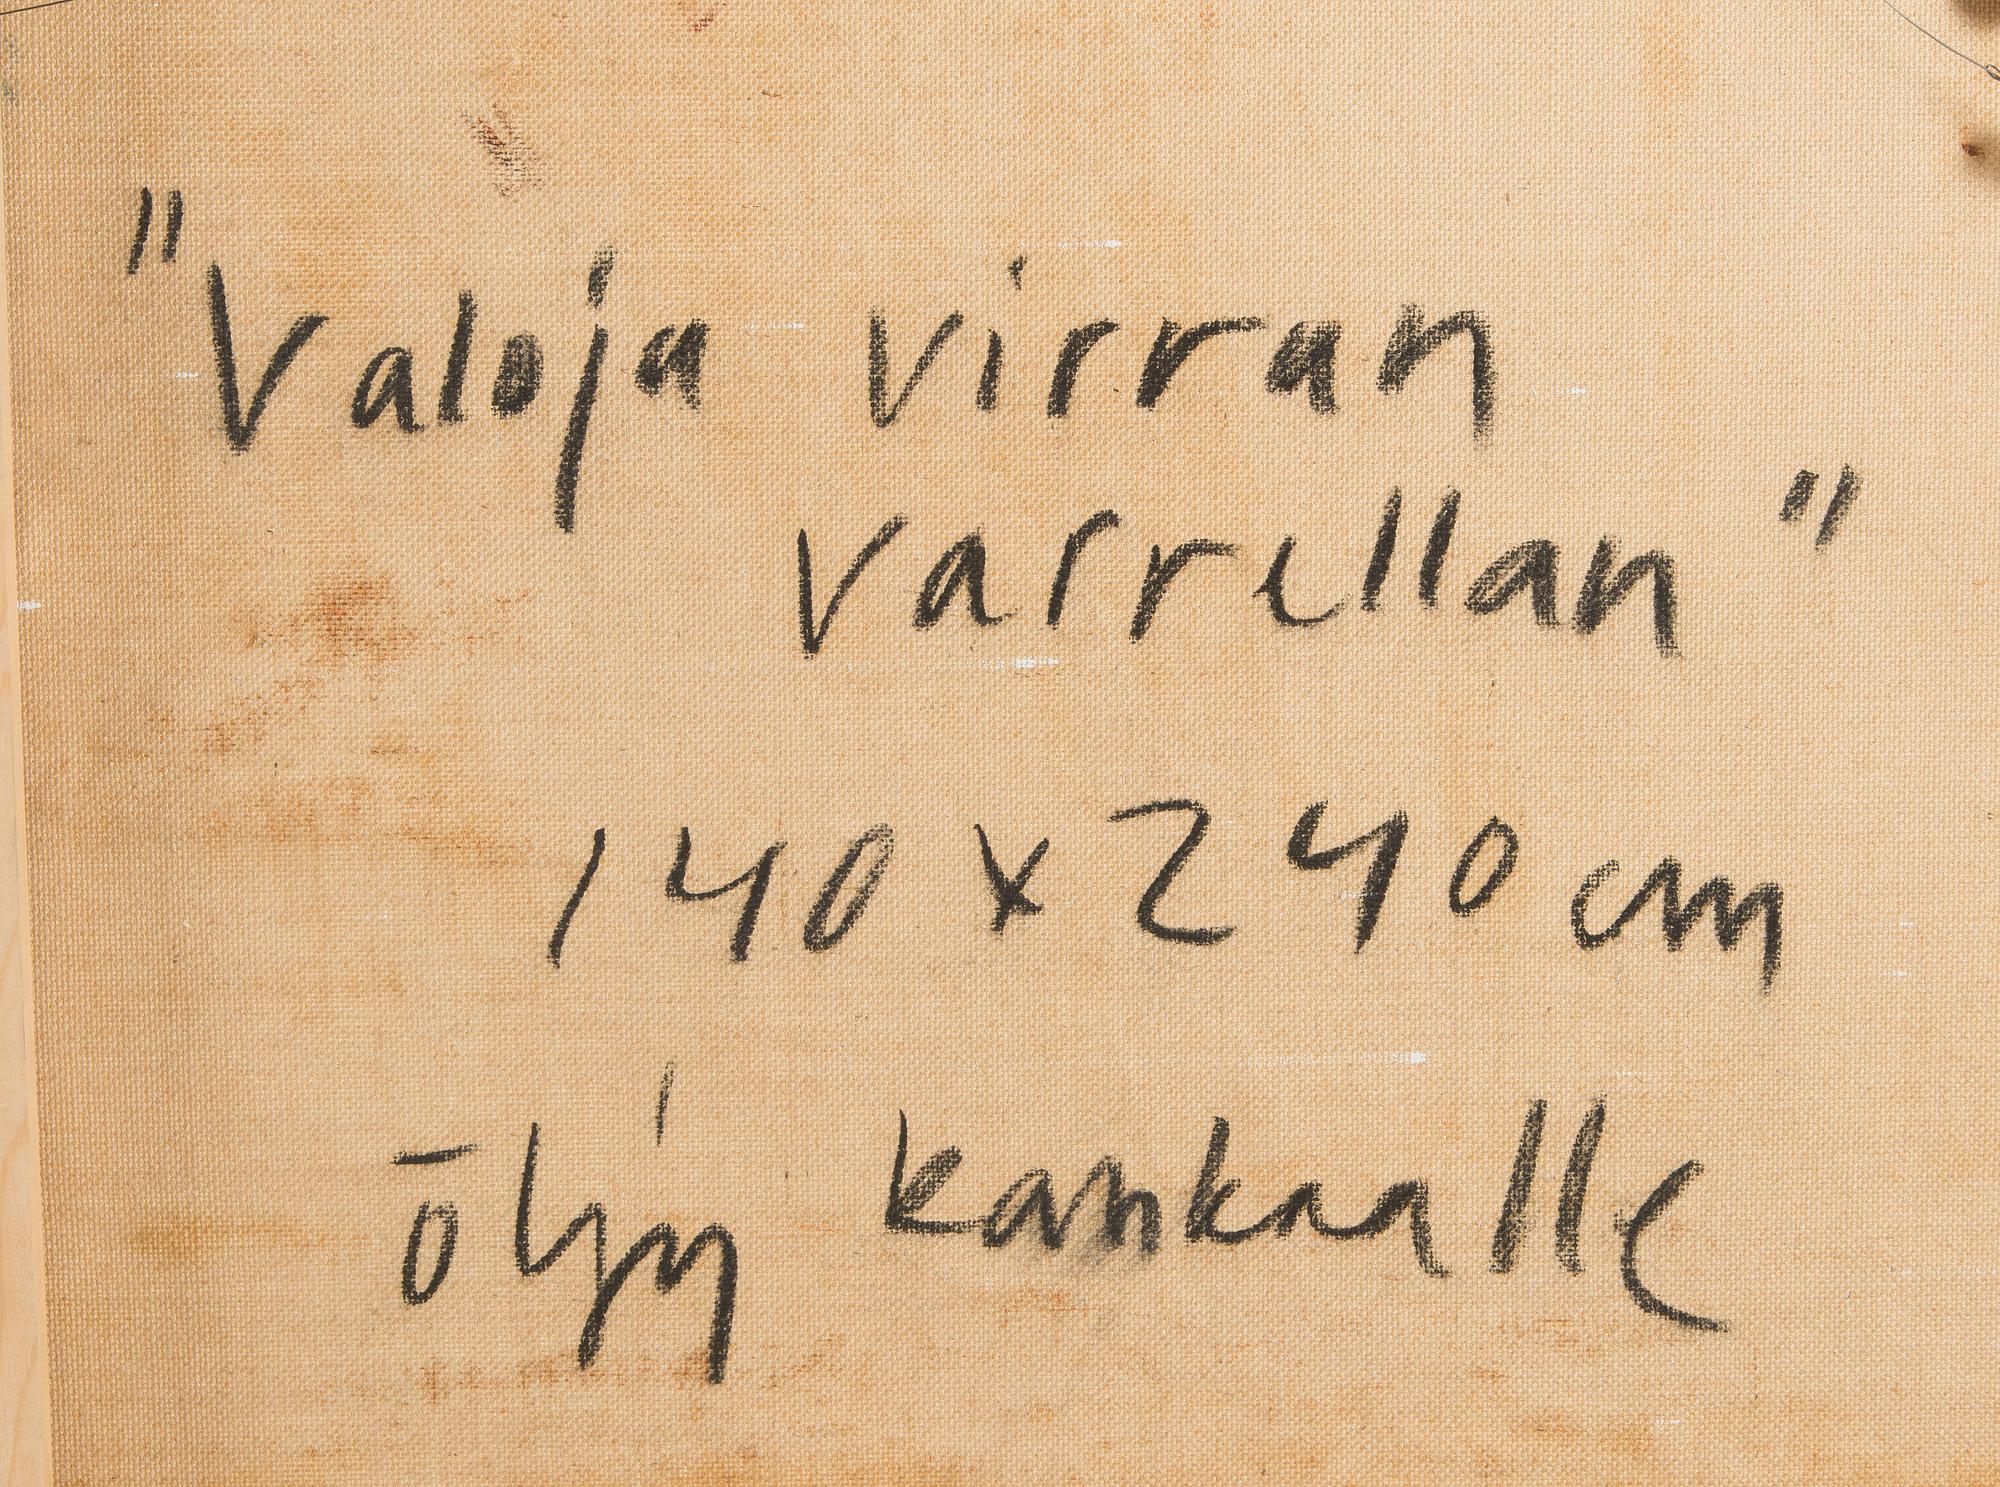 "Valoja virran
varrellan"
140 x 240 cm
öljy kankaalle